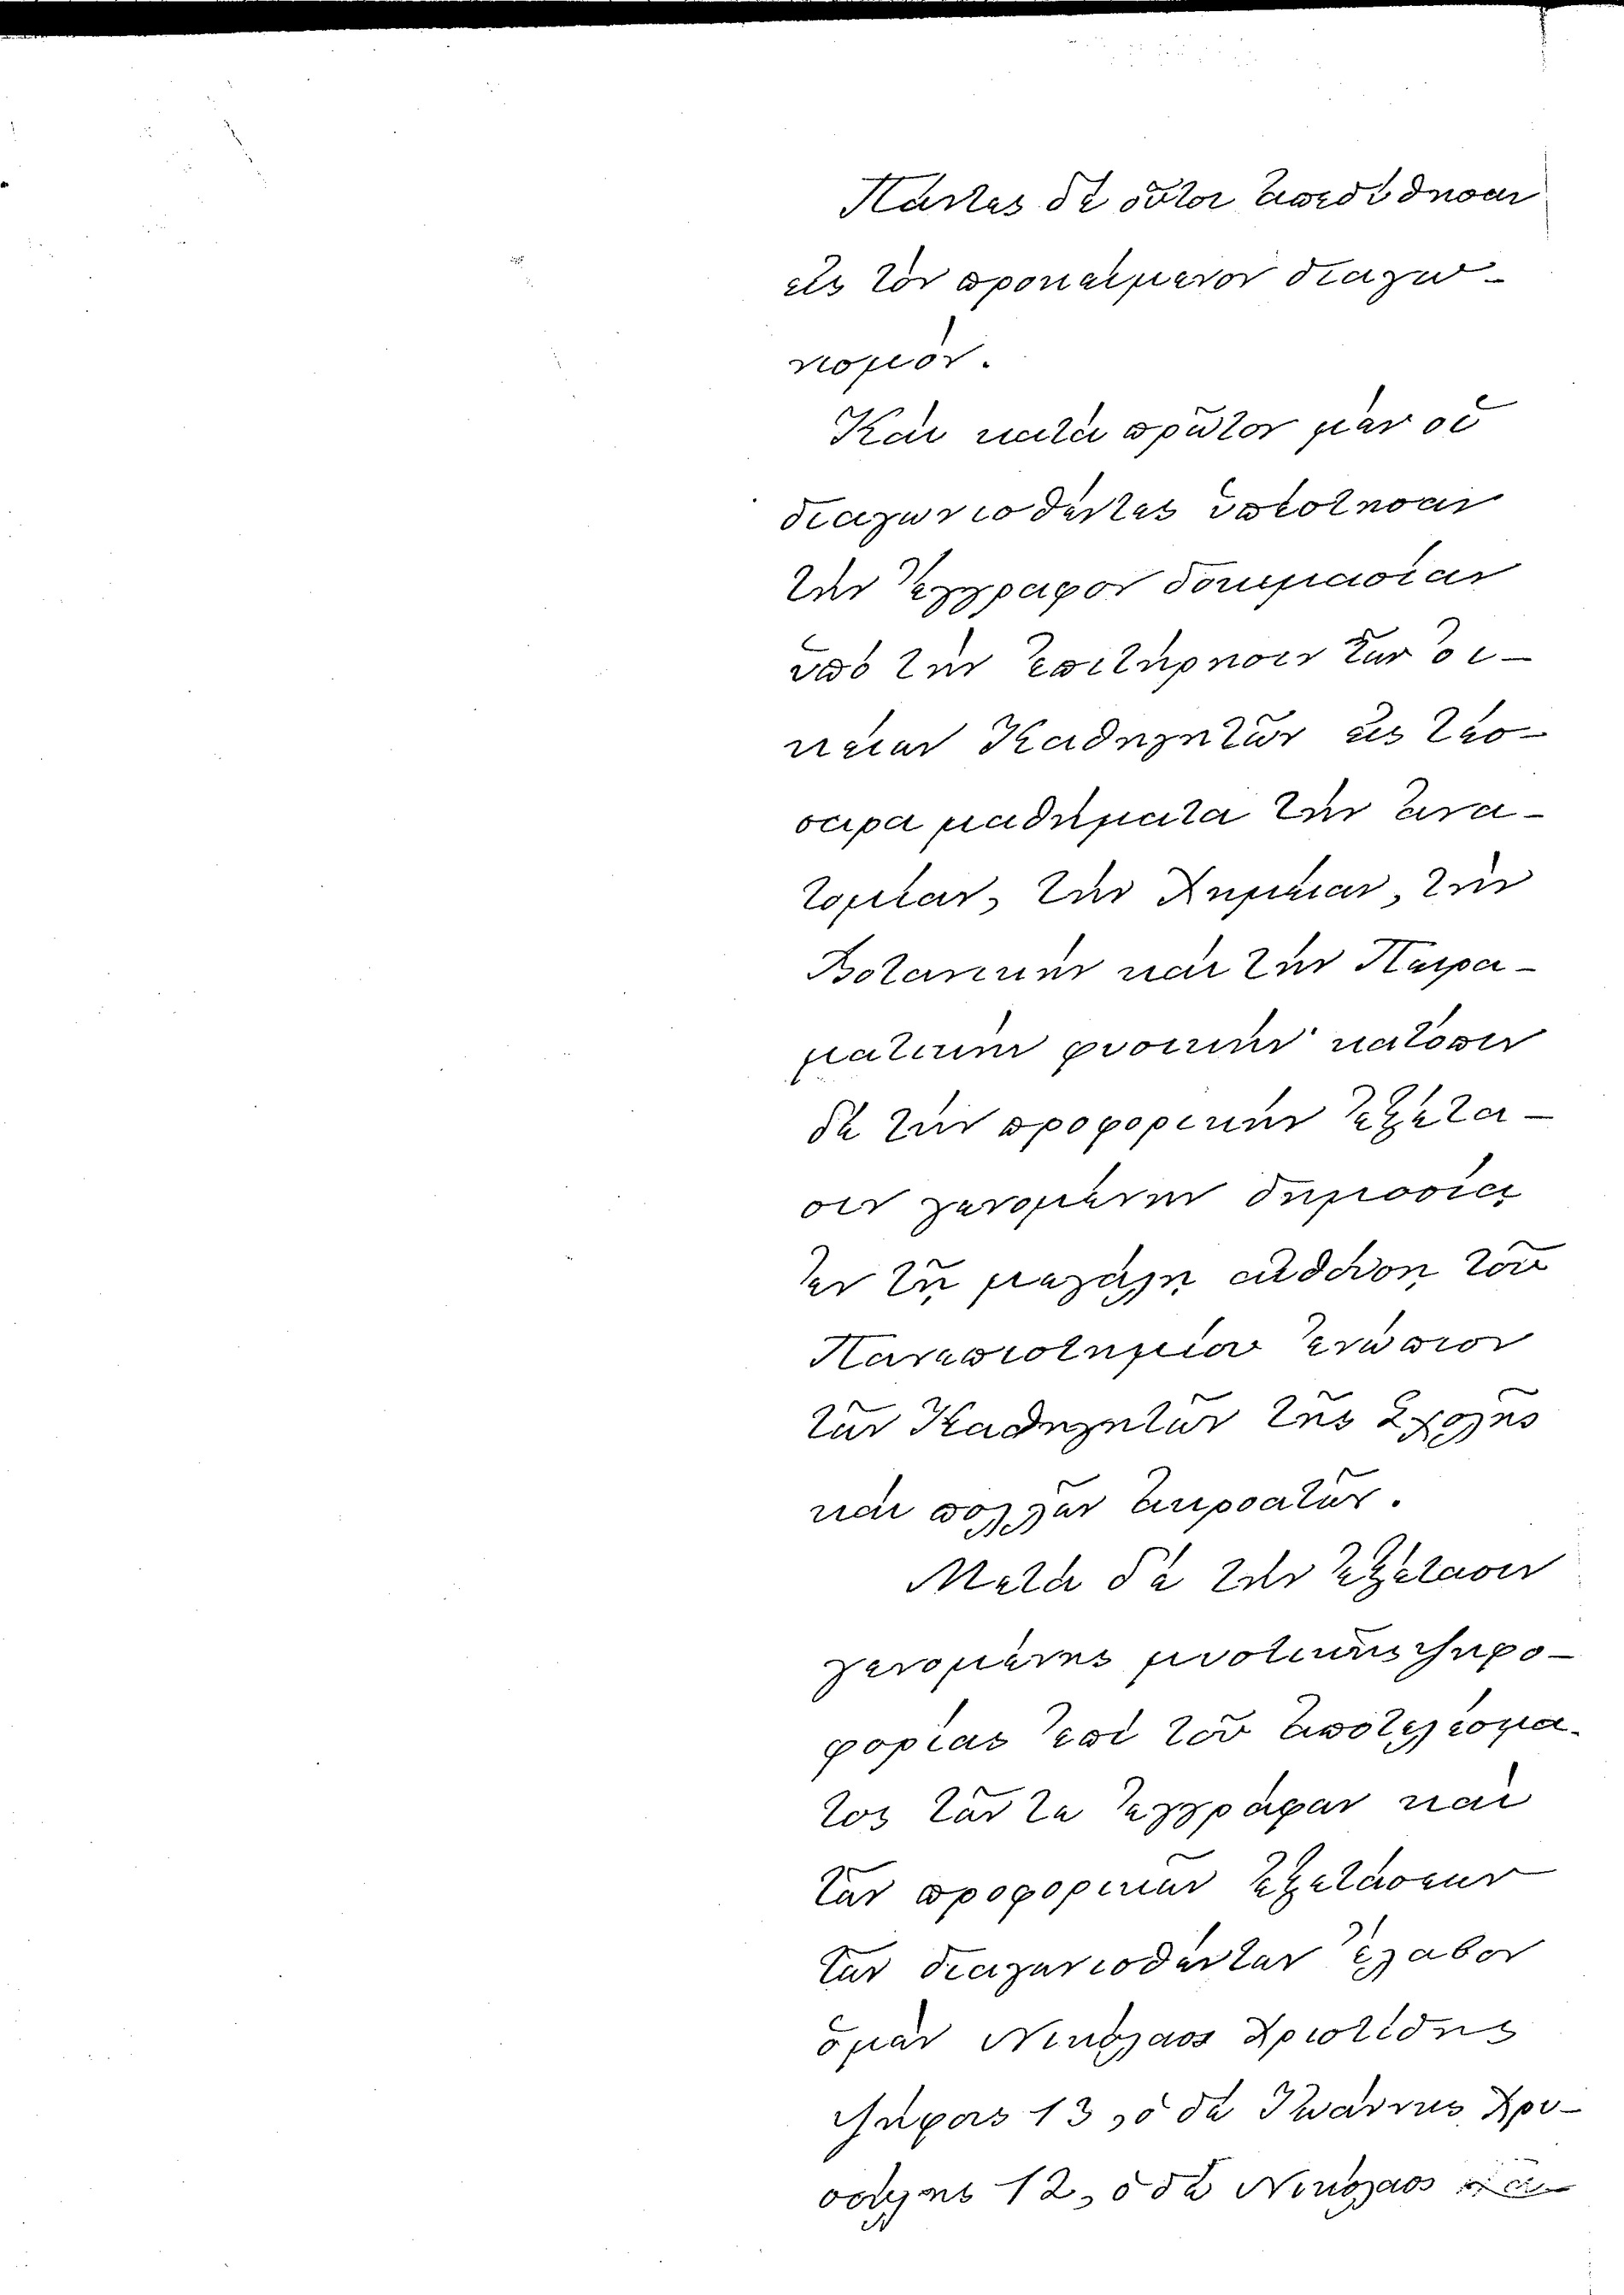 Πάντες δὲ οὗτοι ἀπεδύθησαν
εἰς τὸν προκείμενον διαγω-
νισμόν.
Καὶ κατὰ πρῶτον μὲν οἱ
διαγωνισθέντες ὑπέστησαν
τὴν ἔγγραφον δοκιμασίαν
ὑπὸ τὴν ἐπιτήρησιν τῶν οἰ-
κείων Καθηγητῶν εἰς τέσ-
σαρα μαθήματα τὴν ἀνα-
τομίαν, τὴν Χημείαν, τὴν
Βοτανικὴν καὶ τὴν Πειρα-
ματικὴν φυσικήν· κατόπιν
δὲ τὴν προφορικὴν ἐξέτα-
σιν γενομένην δημοσίᾳ
ἐν τῇ μεγάλῃ αἰθούσῃ τοῦ
Πανεπιστημίου ἐνώπιον
τῶν Καθηγητῶν τῆς Σχολῆς
καὶ πολλῶν ἀκροατῶν.
Μετὰ δὲ τὴν ἐξέτασιν
γενομένης μυστικῆς ψηφο-
φορίας ἐπὶ τοῦ ἀποτελέσμα-
τος τῶν τε ἐγγράφων καὶ
τῶν προφορικῶν ἐξετάσεων
τῶν διαγωνισθέντων ἔλαβον
ὁ μὲν Νικόλαος Χρηστίδης
ψήφους 13, ὁ δὲ Ἰωάννης Χρυ-
σούλης 12, ὁ δὲ Νικόλαος